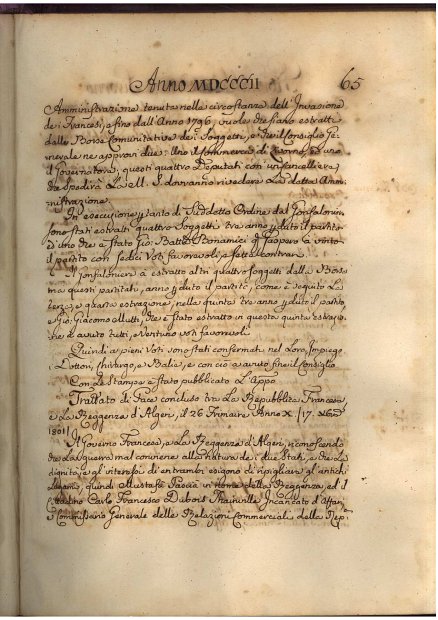 Anno MDCCCII 65
Amministrazione tenuta nelle circostanze dell'Invasione
de i Francesi, e fino dall'Anno 1796, vuole che siano estratti
dalla Borsa Comunitativa de i Soggetti, e che il Consiglio Ge-
nerale ne approvi due: Uno il Commercio di Livorno, ed uno
il Governatore, questi quattro Deputati con un Cancelliere
che spedirà la R. S. dovranno risedere
nistrazione.
In esecuzione pertanto di Suddetto Ordine dal Gonfaloniere
sono stati estratti quattro Soggetti, tra anno dato il partito
ed uno che è stato Gio: Batta Bonamici q. Gaspero à vinto
il partito con sedici Voti favorevoli, e sette contrari.
Il Gonfaloniere à estratto altri quattro Soggetti dalla Borsa
ma questi partitati, anno perduto il partito, come è seguito La
terza, e quarta estrazione, nella quinta tre anno perduto il partito,
e Gio: Giacomo Mutti, che è stato estratto in questa quinta estrazio-
ne à avuto tutti, e Ventuno voti favorevoli.
Quindi a pieni Voti sono stati confermati nel Loro Impiego
i Dottori, Chirurgo, e Balia, e con ciò à avuto fine il Consiglio
Con la stampa è stato pubblicato L'Appo
Trattato di Pace concluso tra La Repubblica Francese,
e La Reggenza d'Algeri, il 26 Frimaire Anno X. /17. Xbre
1801/
Il Governo Francese, e La Reggenza d'Algeri, riconoscendo
che La Guerra mal conviene alla natura de i due Stati, e che La
dignità e gl'interessi di entrambi esigono di ripigliare gl'antichi
Legami, quindi Mustafà Pascià in nome della Reggenza, ed il
Cittadino Carlo Francesco Dubois Thainville Incaricato d'Affari
e Commissario Generale delle Relazioni Commerciali della Rep.